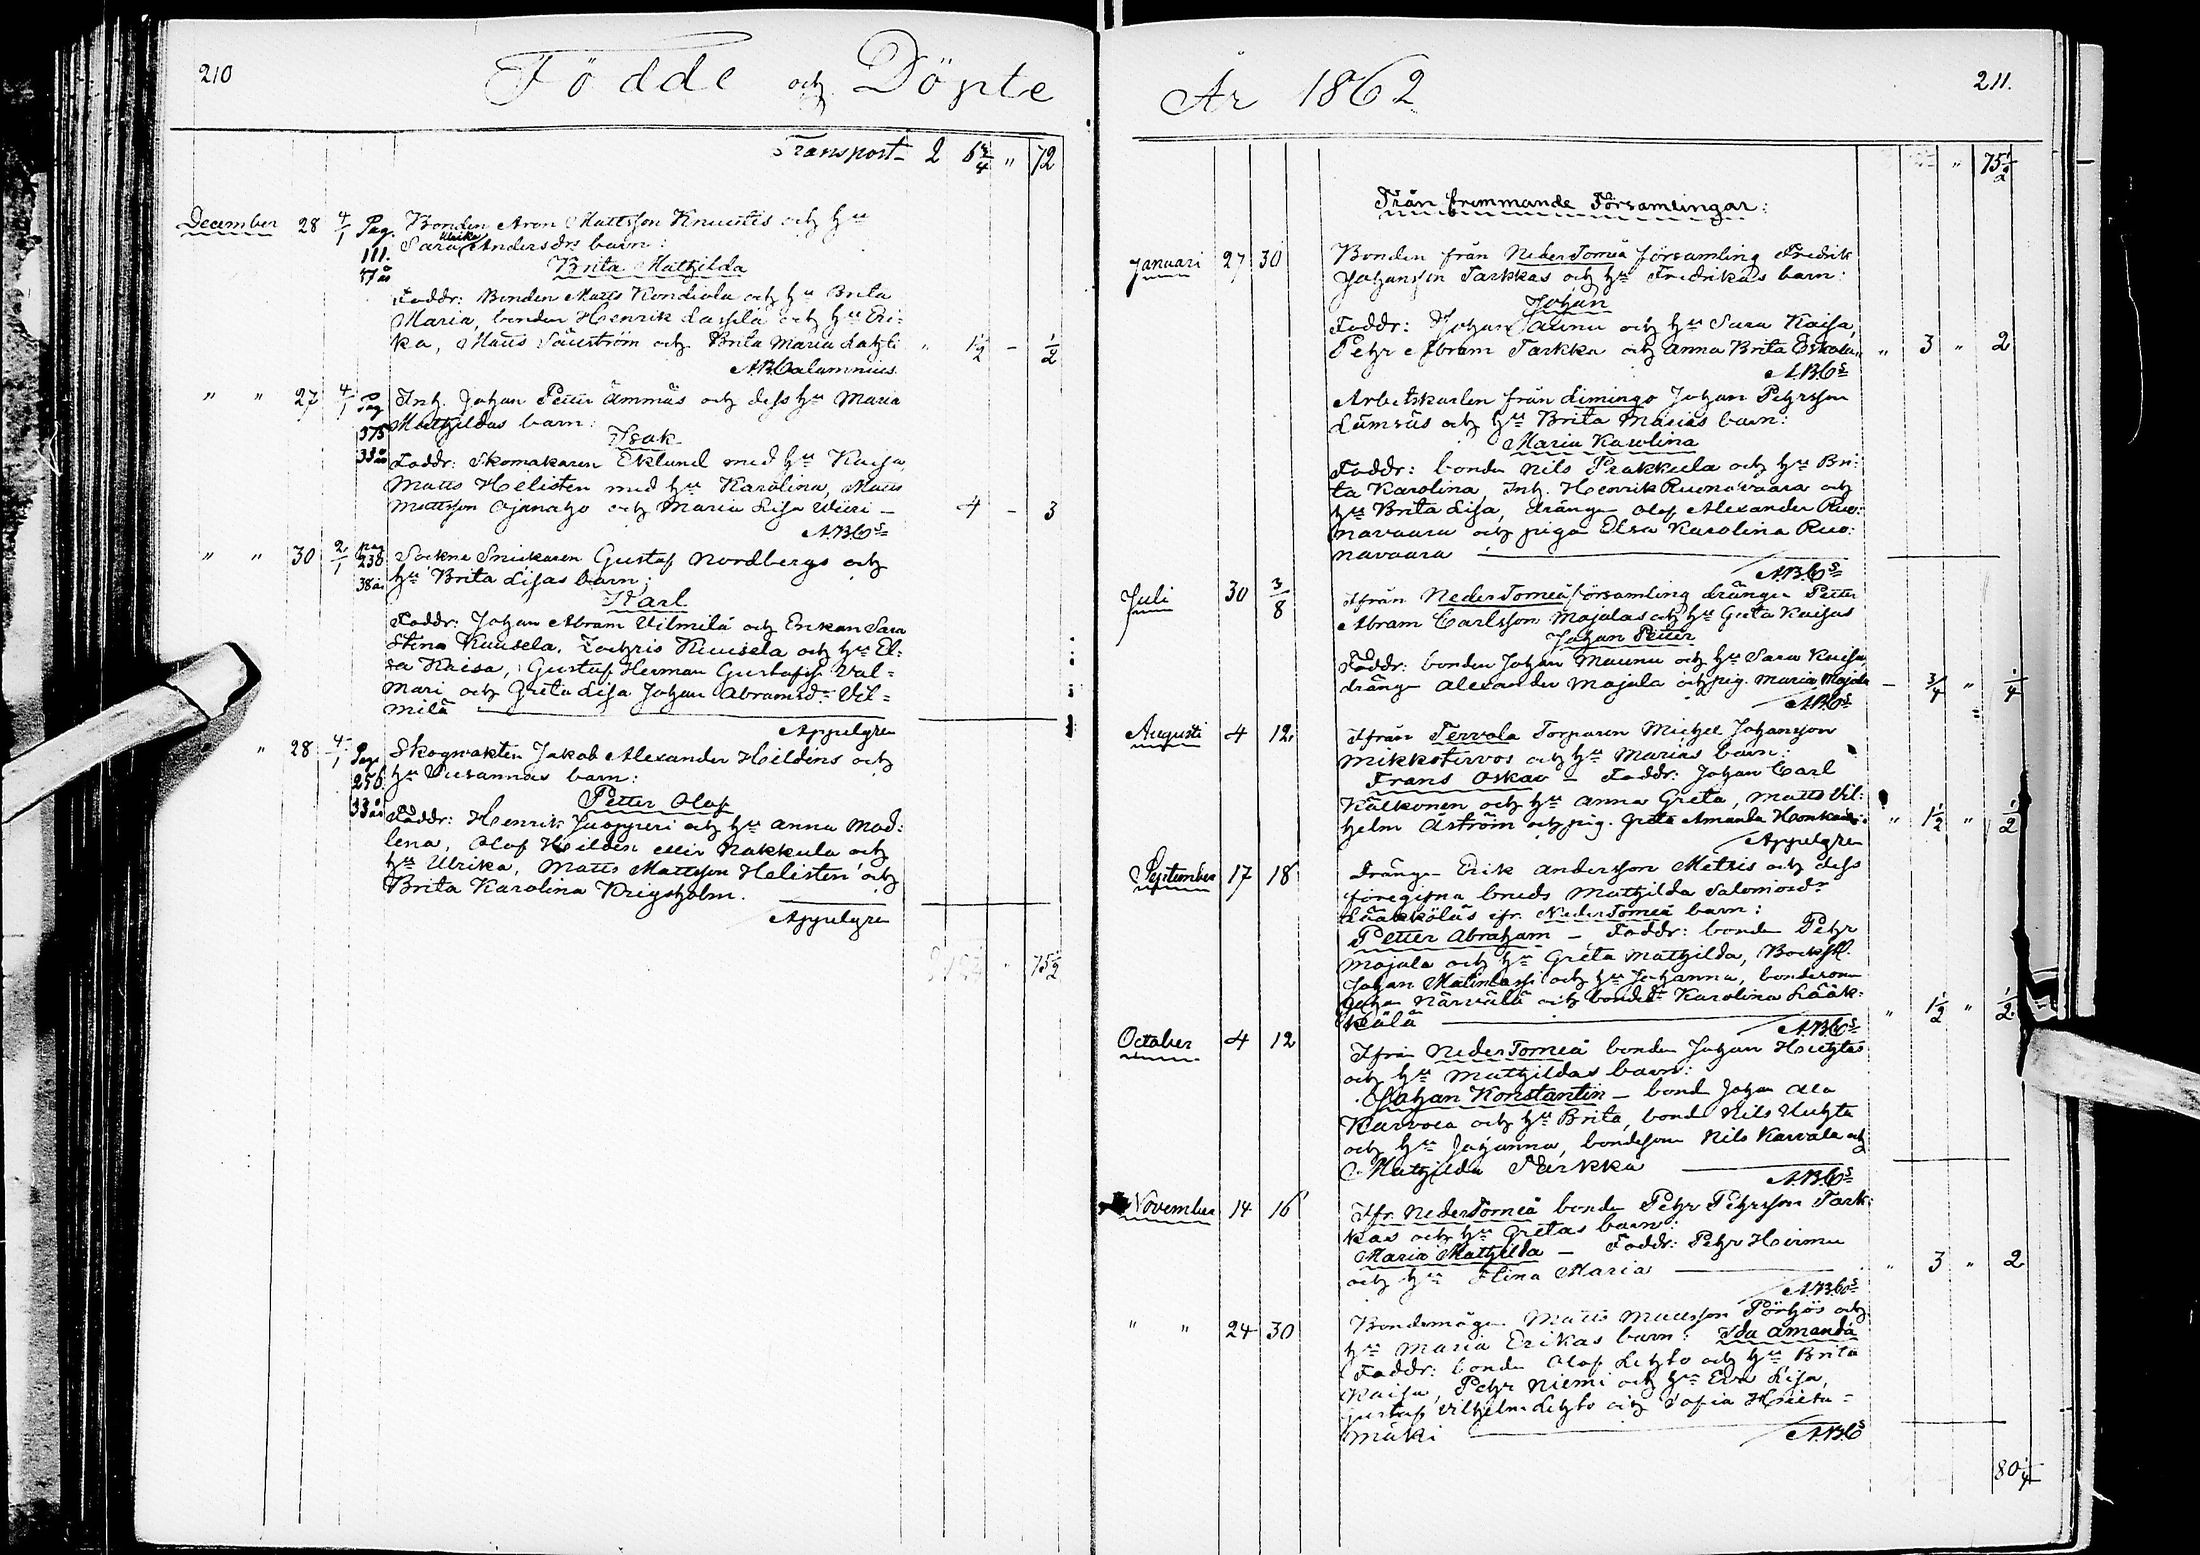 210
Födde och Döpte
Transport 2 6 3/4 " 72
December 28 4/1 Pag. Bonden Aron Mattsson Knuutis och hu
111. Sara Ulrika Andersdrs barn:
Brita Mathilda
Faddr: Bonden Matts Kondiola och hu Brita
Maria, bonden Henrik Lassila och hu Eri-
ka, Matts och Brita Maria Lahti " 1 1/2 - 1/2
A.B.Calamnius
" " 27 4/1 Pag Inh. Johan Petter Ämmäs och dess hu Maria
375 Mathildas barn:
Isak
33 år Faddr: Skomakaren Eklund med hu Kaisa,
Matts Helisten med hu Karolina, Matts
Mattsson Ojanaho och Maria Lisa Wiiri - 4 - 3
A.B.Cs
" " 30 2/1 Pag 238 Sockne Snickaren Gustaf Nordbergs och
38 år hu Brita Lisas barn:
Karl
Faddr: Johan Abram Vilmilä och Enkan Sara
Stina Kuusela, Zachris Kuusela och hu El-
sa Kaisa, Gustaf Herman Gustafss. Val-
mari och Greta Lisa Johan Abramsdr Vil-
milä
Appelgren
" 28 4/1 Page Skogvakten Jakob Alexander Hildens och
256 hu Susannas barn:
Petter Olof
33 år Faddr: Henrik Juopperi och hu Anna Mad-
lena, Olof Hilden eller Nakkula och
hu Ulrika, Matts Mattsson Helisten och
Brita Karolina Krigsholm.
Appelgren
75 1/2
År 1862
211.
" 75 1/2
Från främmande Församlingar:
Januari 27 30 Bonden från Neder Torneå församling Fredrik
Johansson Tarkkas och hu Fredrikas barn:
Johan
Faddr: Johan Maunu och hu Sara Kaisa,
Pehr Abram Tarkka och Anna Brita Eskola " 3 " 2
A.B.Cs
Arbetskarlen från Limingo Johan Pehrsson
Lämsäs och hu Brita Marias barn:
Maria Karolina
Faddr: bonden Nils Prakkula och hu Bri-
ta Karolina, Inh. Henrik Ruonavaara och
hu Brita Lisa, drängen Olof Alexander Ruo-
navaara och piga Elsa Karolina Ruo-
navaara
A.B.Cs
Juli 30 3/8 Ifrån Neder Torneå församling drängen Petter
Abram Carlsson Majalas och hu Greta Kaisas
Johan Petter
Faddr: bonden Johan Maunu och hu Sara Kaisa,
dränge Alexander Majala och pig. Maria Majala - 3/4 " 1/4
A.B.Cs
Augusti 4 12 Ifrån Tervola Torparen Michel Johansson
Mikkotervos och hu Marias barn:
Frans Oskar - Faddr: Johan Carl
Kälkönen och hu Anna Greta, Matts Vil-
helm Åström och pig. Greta Amanda " 1 1/2 " 1/2
Appelgren
September 17 18 Drängen Erik Andersson Metsis och dess
föregifna bruds Mathilda Salomonsdr
Lääkkölas ifr. Neder Torneå barn:
Petter Abraham - Faddr: bonden Pehr
Majala och hu Greta Mathilda,
Johan och hu Johanna, bondeson
Johan Närvälä och bonddr Karolina Lääk-
kölä " 1 1/2 " 1/2
A.B.Cs
October 4 12 Ifrån Neder Torneå bonden Johan Huhtas
och hu Mathildas barn:
Johan Konstantin - bond Johan Ala
Karvola och hu Brita, bond Nils Huhta
och hu Johanna, bondeson Nils Karvola och
Mathilda Tarkka
A.B.Cs
November 14 16 Ifr. Neder Torneå bonden Pehr Pehrsson Tark-
kas och hu Gretas barn:
Maria Mathilda - Faddr: Pehr Hoirmu
och hu Stina Maria " 3 " 2
A.B.Cs
" " 24 30 Bondemågen Matts Mattsson Pörhös och
hu Maria Erikas barn: Ida Amanda
Faddr: bonden Olof Lehto och hu Brita
Kaisa, Pehr Niemi och hu Eva Lisa,
Gustaf Vilhelm Lehto och Sofia Hieta-
mäki
A.B.Cs
80 1/4